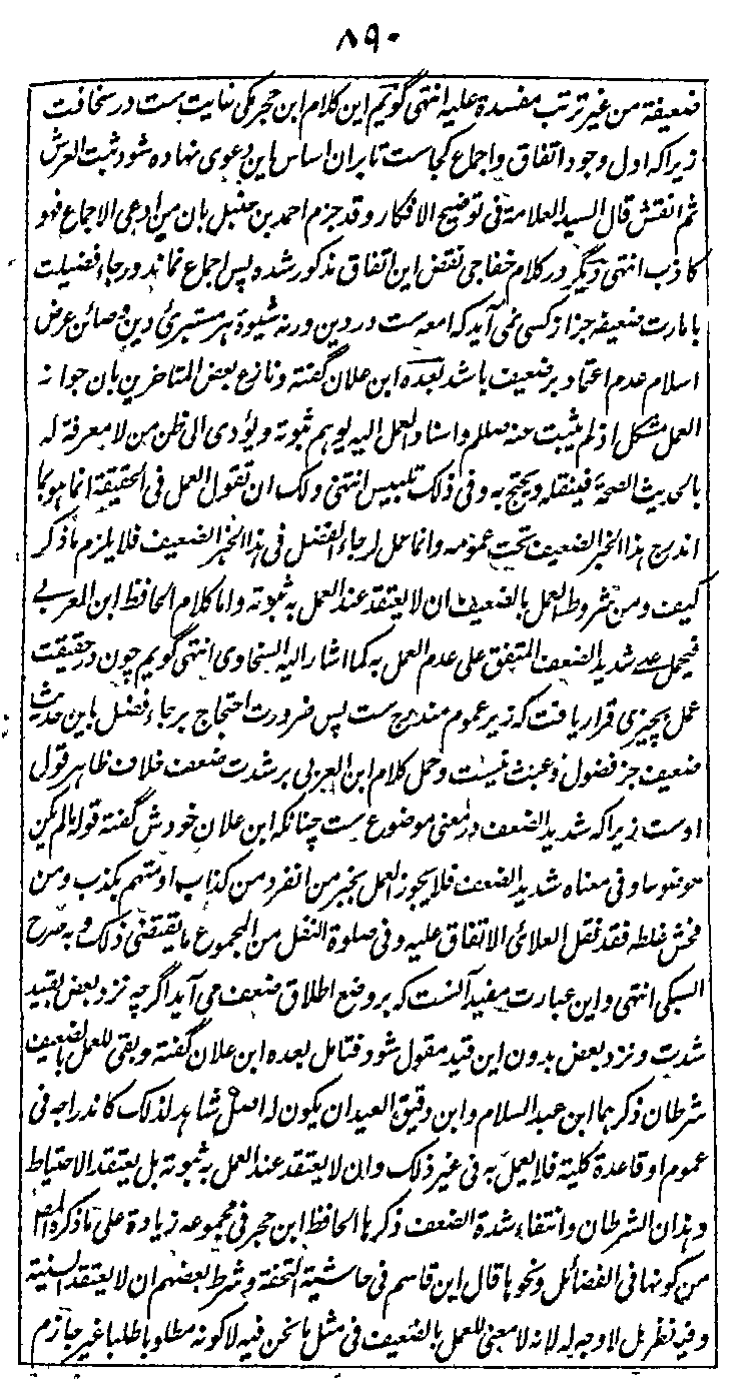 ۸۹۰
ضعیفة من غیر ترتب مفسدة علیه انتهی گویم این کلام ابن حجر مکی نهایت ست در سخافت
زیرا که اول وجود اتفاق و اجماع کجاست تا بران اساس این دعوی نهاده شود ثبت العرش
ثم انقش قال السید العلامة فی توضیح الافکار وقد جزم احمد بن حنبل بان من ادعی الاجماع فهو
کاذب انتهی دیگر در کلام خفاجی نقض این اتفاق مذکور شده پس اجماع نماند و رجاء فضیلت
بامارت ضعیفه جز از کسی نمی آید که امعه ست در دین ورنه شیوۀ هر مستبرئ دین و صائن عرض
اسلام عدم اعتماد بر ضعیف باشد بعده ابن علان گفته ونازع بعض المتاخرین بان جواز
العمل مشکل اذ لم یثبت عنه صللم واسناد العمل الیه یوهم ثبوته ویؤدی الی ظن من لا معرفة له
بالحدیث الصحة فینقله ویحتج به وفی ذلک تلبیس انتهی ولک ان تقول العمل فی الحقیقة انما هو بما
اندرج هذا الخبر الضعیف تحت عمومه وانما عمل لرجاء الفضل فی هذا الخبر الضعیف فلا یلزم ما ذکر
کیف ومن شروط العمل بالضعیف ان لا یعتقد عند العمل به ثبوته واما کلام الحافظ ابن العربی
فیحمل علی شدید الضعف المتفق علی عدم العمل به کما اشار الیه السخاوی انتهی گویم چون در حقیقت
عمل بچیزی قرار یافت که زیر عموم مندرج ست پس ضرورت احتجاج برجاء فضل باین حدیث
ضعیف جز فضول و عبث نیست وحمل کلام ابن العربی بر شدت ضعف خلاف ظاهر قول
اوست زیرا که شدید الضعف در معنی موضوع ست چنانکه ابن علان خودش گفته قوله ما لم یکن
موضوعا وفی معناه شدید الضعف فلا یجوز العمل بخبر من انفرد من کذاب او متهم بکذب ومن
فحش غلطه فقد نقل العلائی الاتفاق علیه وفی صلوة النفل من المجموع ما یقتضی ذلک وبه صرح
السبکی انتهی و این عبارت مفید آنست که بر وضع اطلاق ضعف می آید اگرچه نزد بعض بقید
شدت و نزد بعض بدون این قید مقول شود فتامل بعده ابن علان گفته وبقی للعمل بالضعیف
شرطان ذکرهما ابن عبد السلام وابن دقیق العید ان یکون له اصل شاهد لذلک کاندراجه فی
عموم او قاعدة کلیة فلا یعمل به فی غیر ذلک وان لا یعتقد عند العمل به ثبوته بل یعتقد الاحتیاط
وهذان الشرطان وانتفاء شدة الضعف ذکرها الحافظ ابن حجر فی مجموعه زیادة علی ما ذکره المصر
من کونها فی الفضائل ونحوها قال ابن قاسم فی حاشیة التحفة وشرط بعضهم ان لا یعتقد السنیة
وفیه نظر بل لا وجه له لانه لا معنی للعمل بالضعیف فی مثل ما نحن فیه الا کونه مطلوبا طلبا غیر جازم